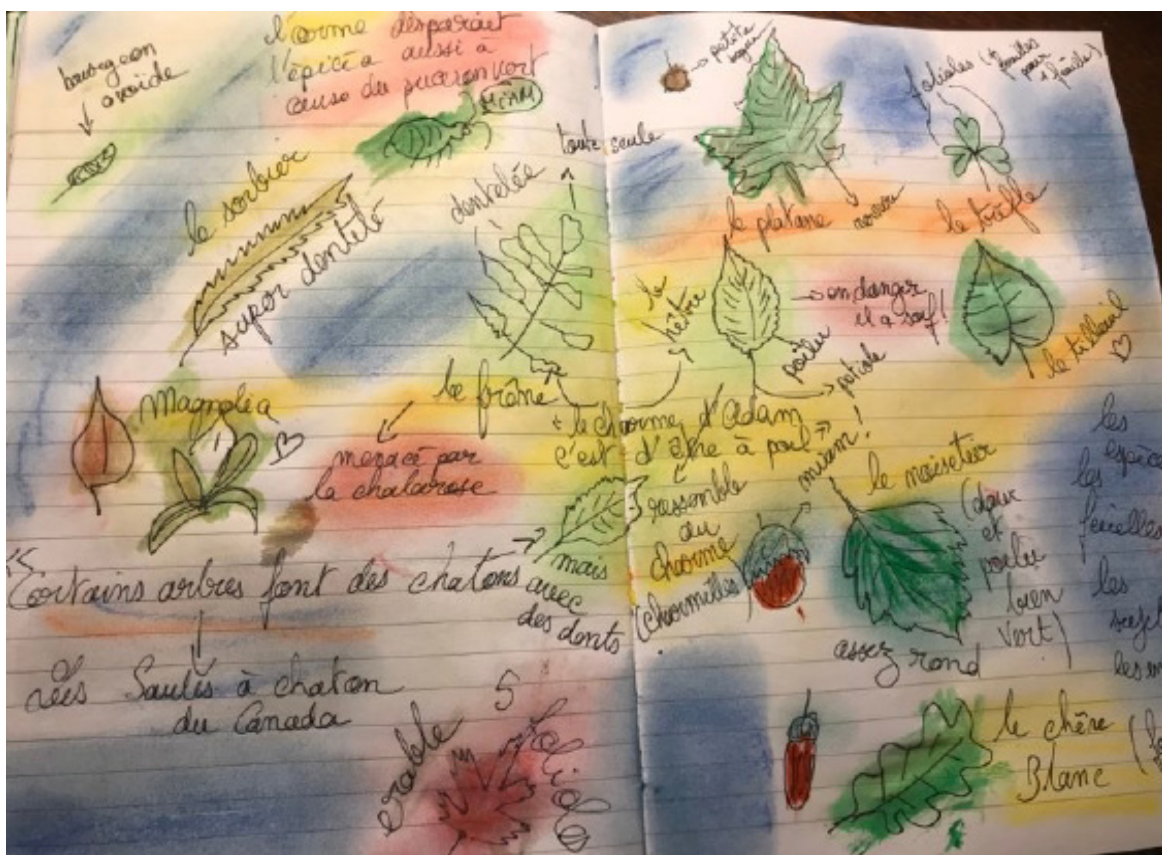 bourgeon
ovoïde
l'orme disparait
l'épicéa aussi à
cause du puceron vert
MiAM
le sorbier
super dentelé
dentelée
toute seule
le frêne
menacé par
la chalarose
Magnolia
"Certains arbres font des chatons
Saules à chaton
du Canada
mais
avec
des dents
érable
5
petite
folioles (
le platane
le trèfle
le
hêtre
en danger
il a soif!
poilu
pétiole
le tilleul
+ le charme d'Adam
c'est d'être à poil"
ressemble
au
charme
(charmilles)
miam!
le noisetier
(doux
et
poilu
bien
vert)
assez rond
le chêne
Blanc
les
les
les